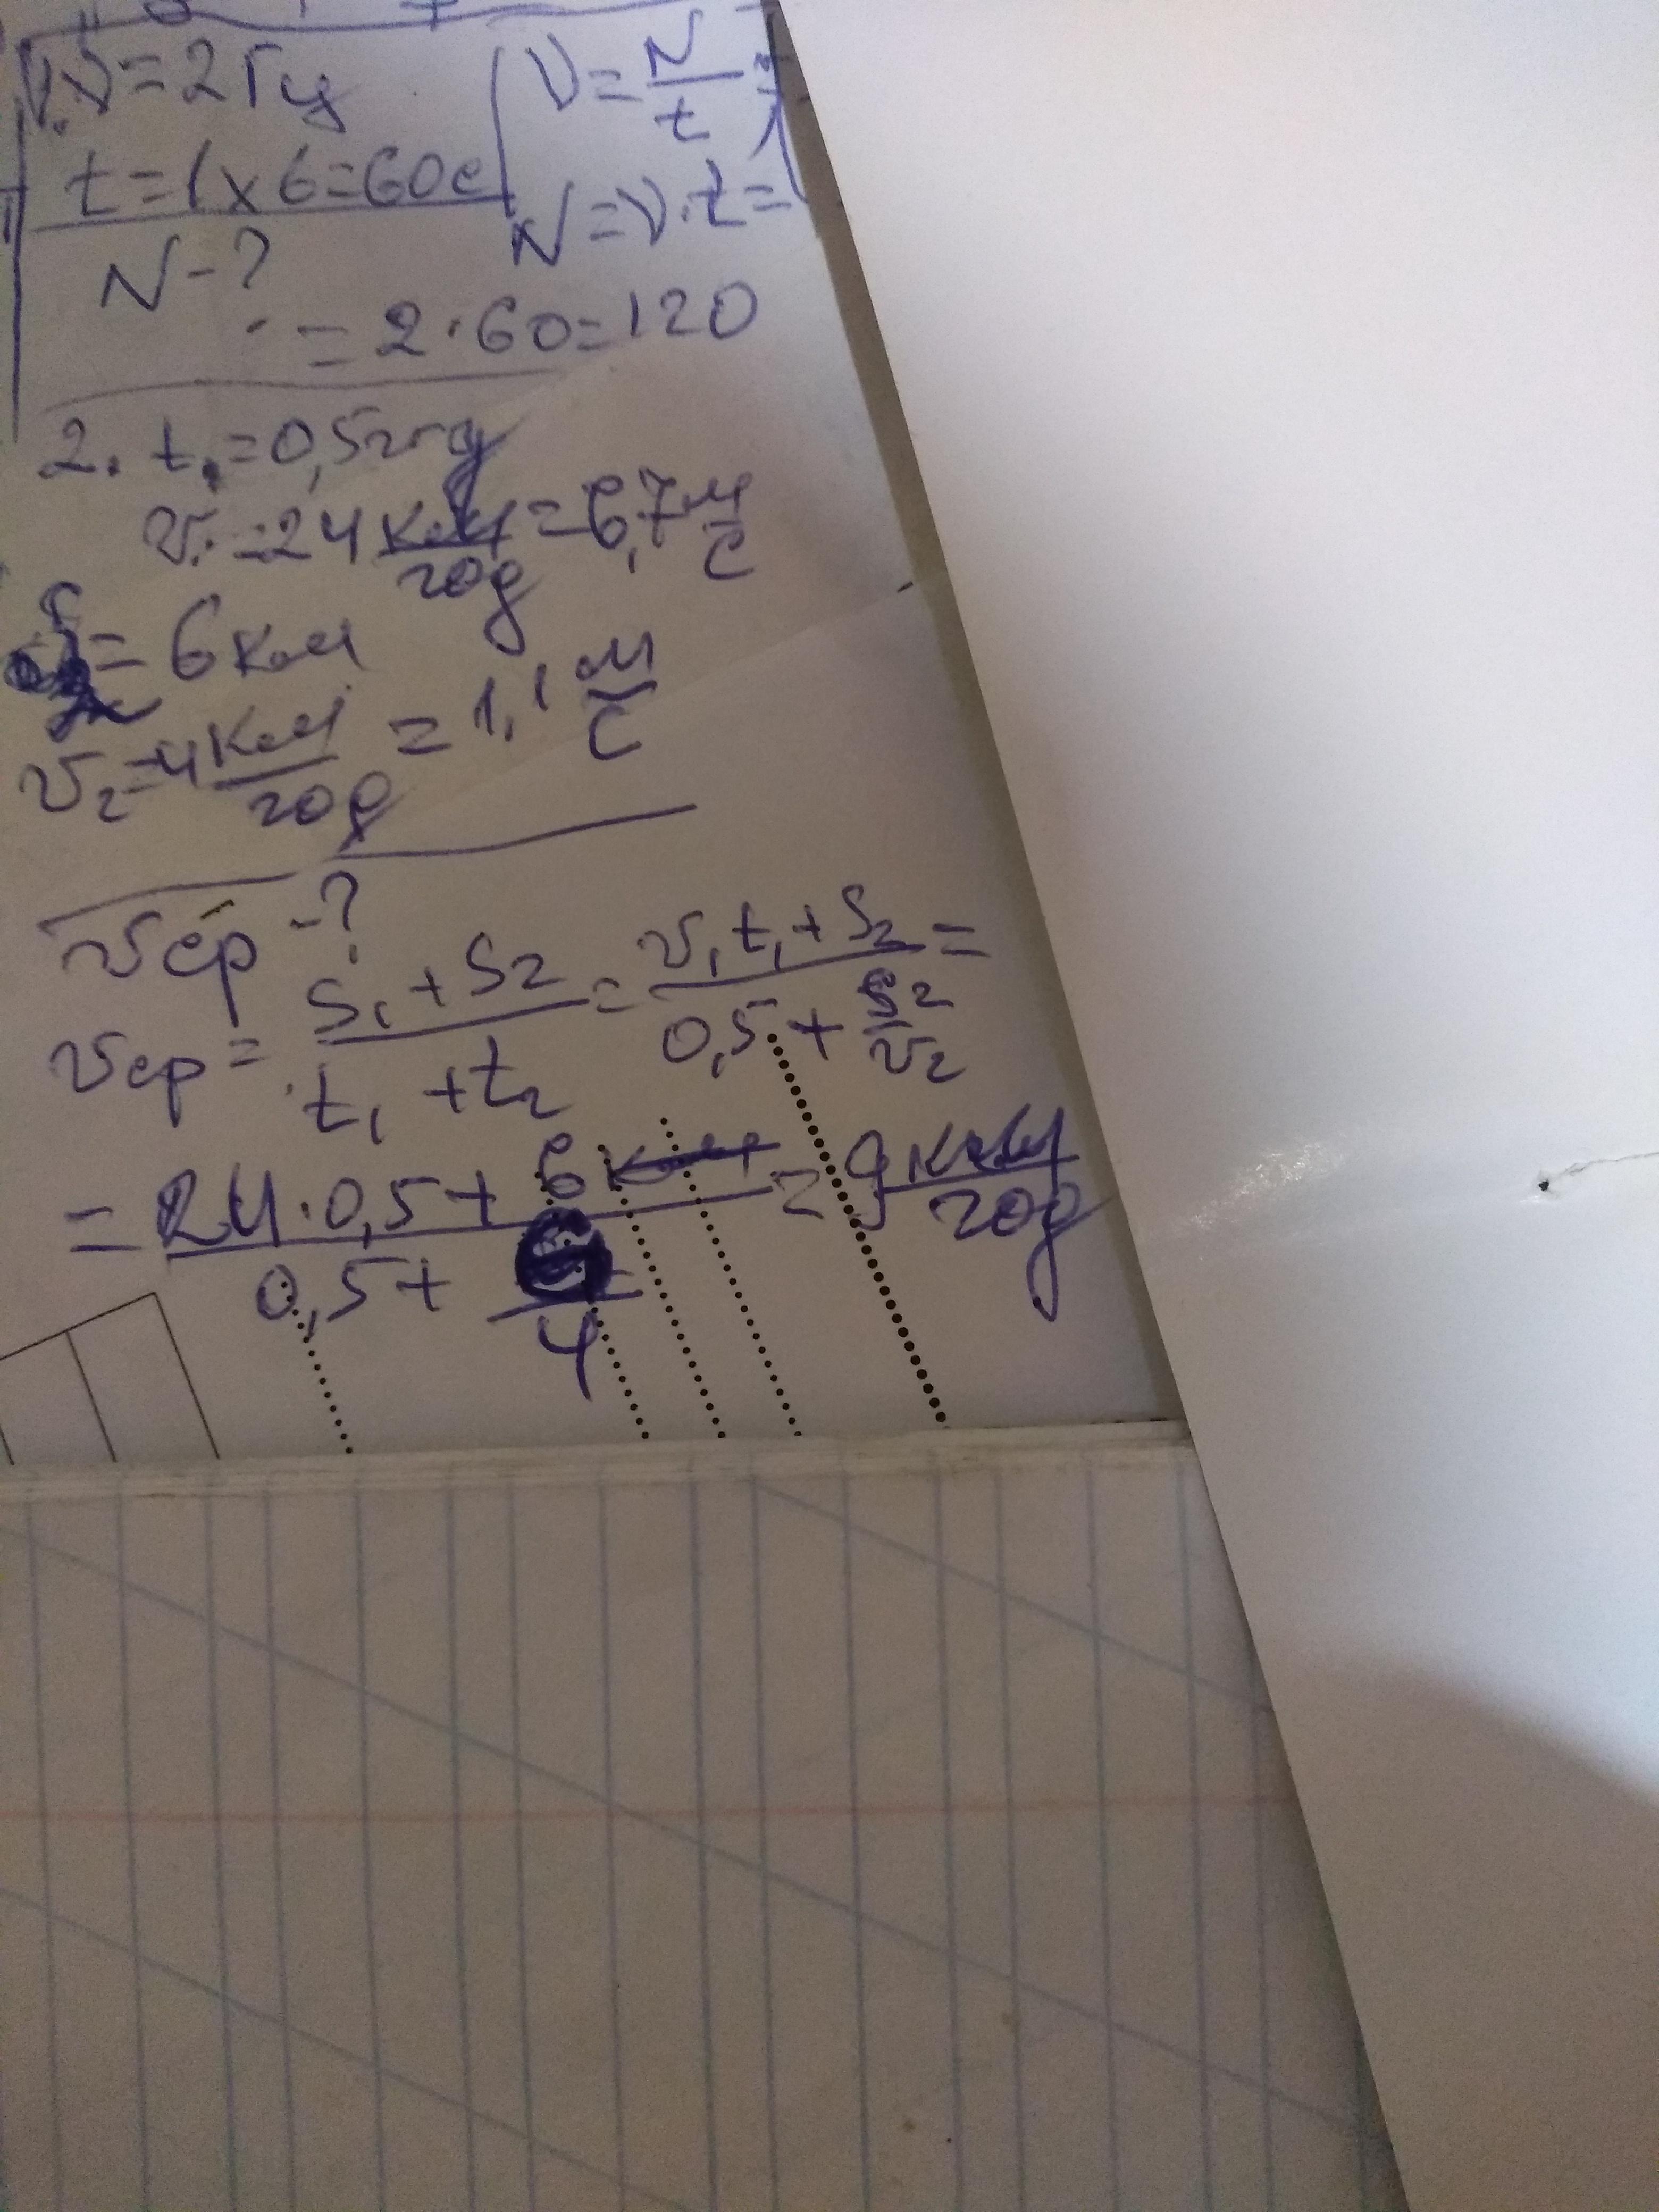 1. ν = 2 Гц
ν = N/t
t = 1 x 6 = 60 с
N = ν · t =
N - ?
= 2 · 60 = 120
2. t₁ = 0,5 год
v₁ = 24 км/год = 6,7 м/с
S₂ = 6 км
v₂ = 4 км/год = 1,1 м/с
vср - ?
vср = S₁ + S₂ / t₁ + t₂ = v₁t₁ + S₂ / 0,5 + S₂/v₂ =
= 24 · 0,5 + 6 / 0,5 + 6/4 = 9 км/год